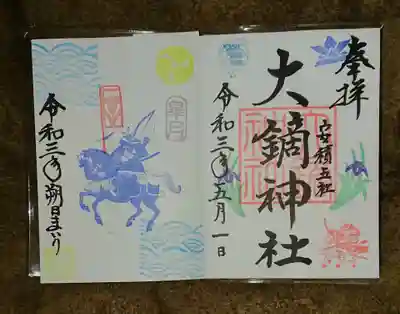 奉拝
安積五社
大鏑神社
令和三年五月一日
皐月
令和三年朔日まいり